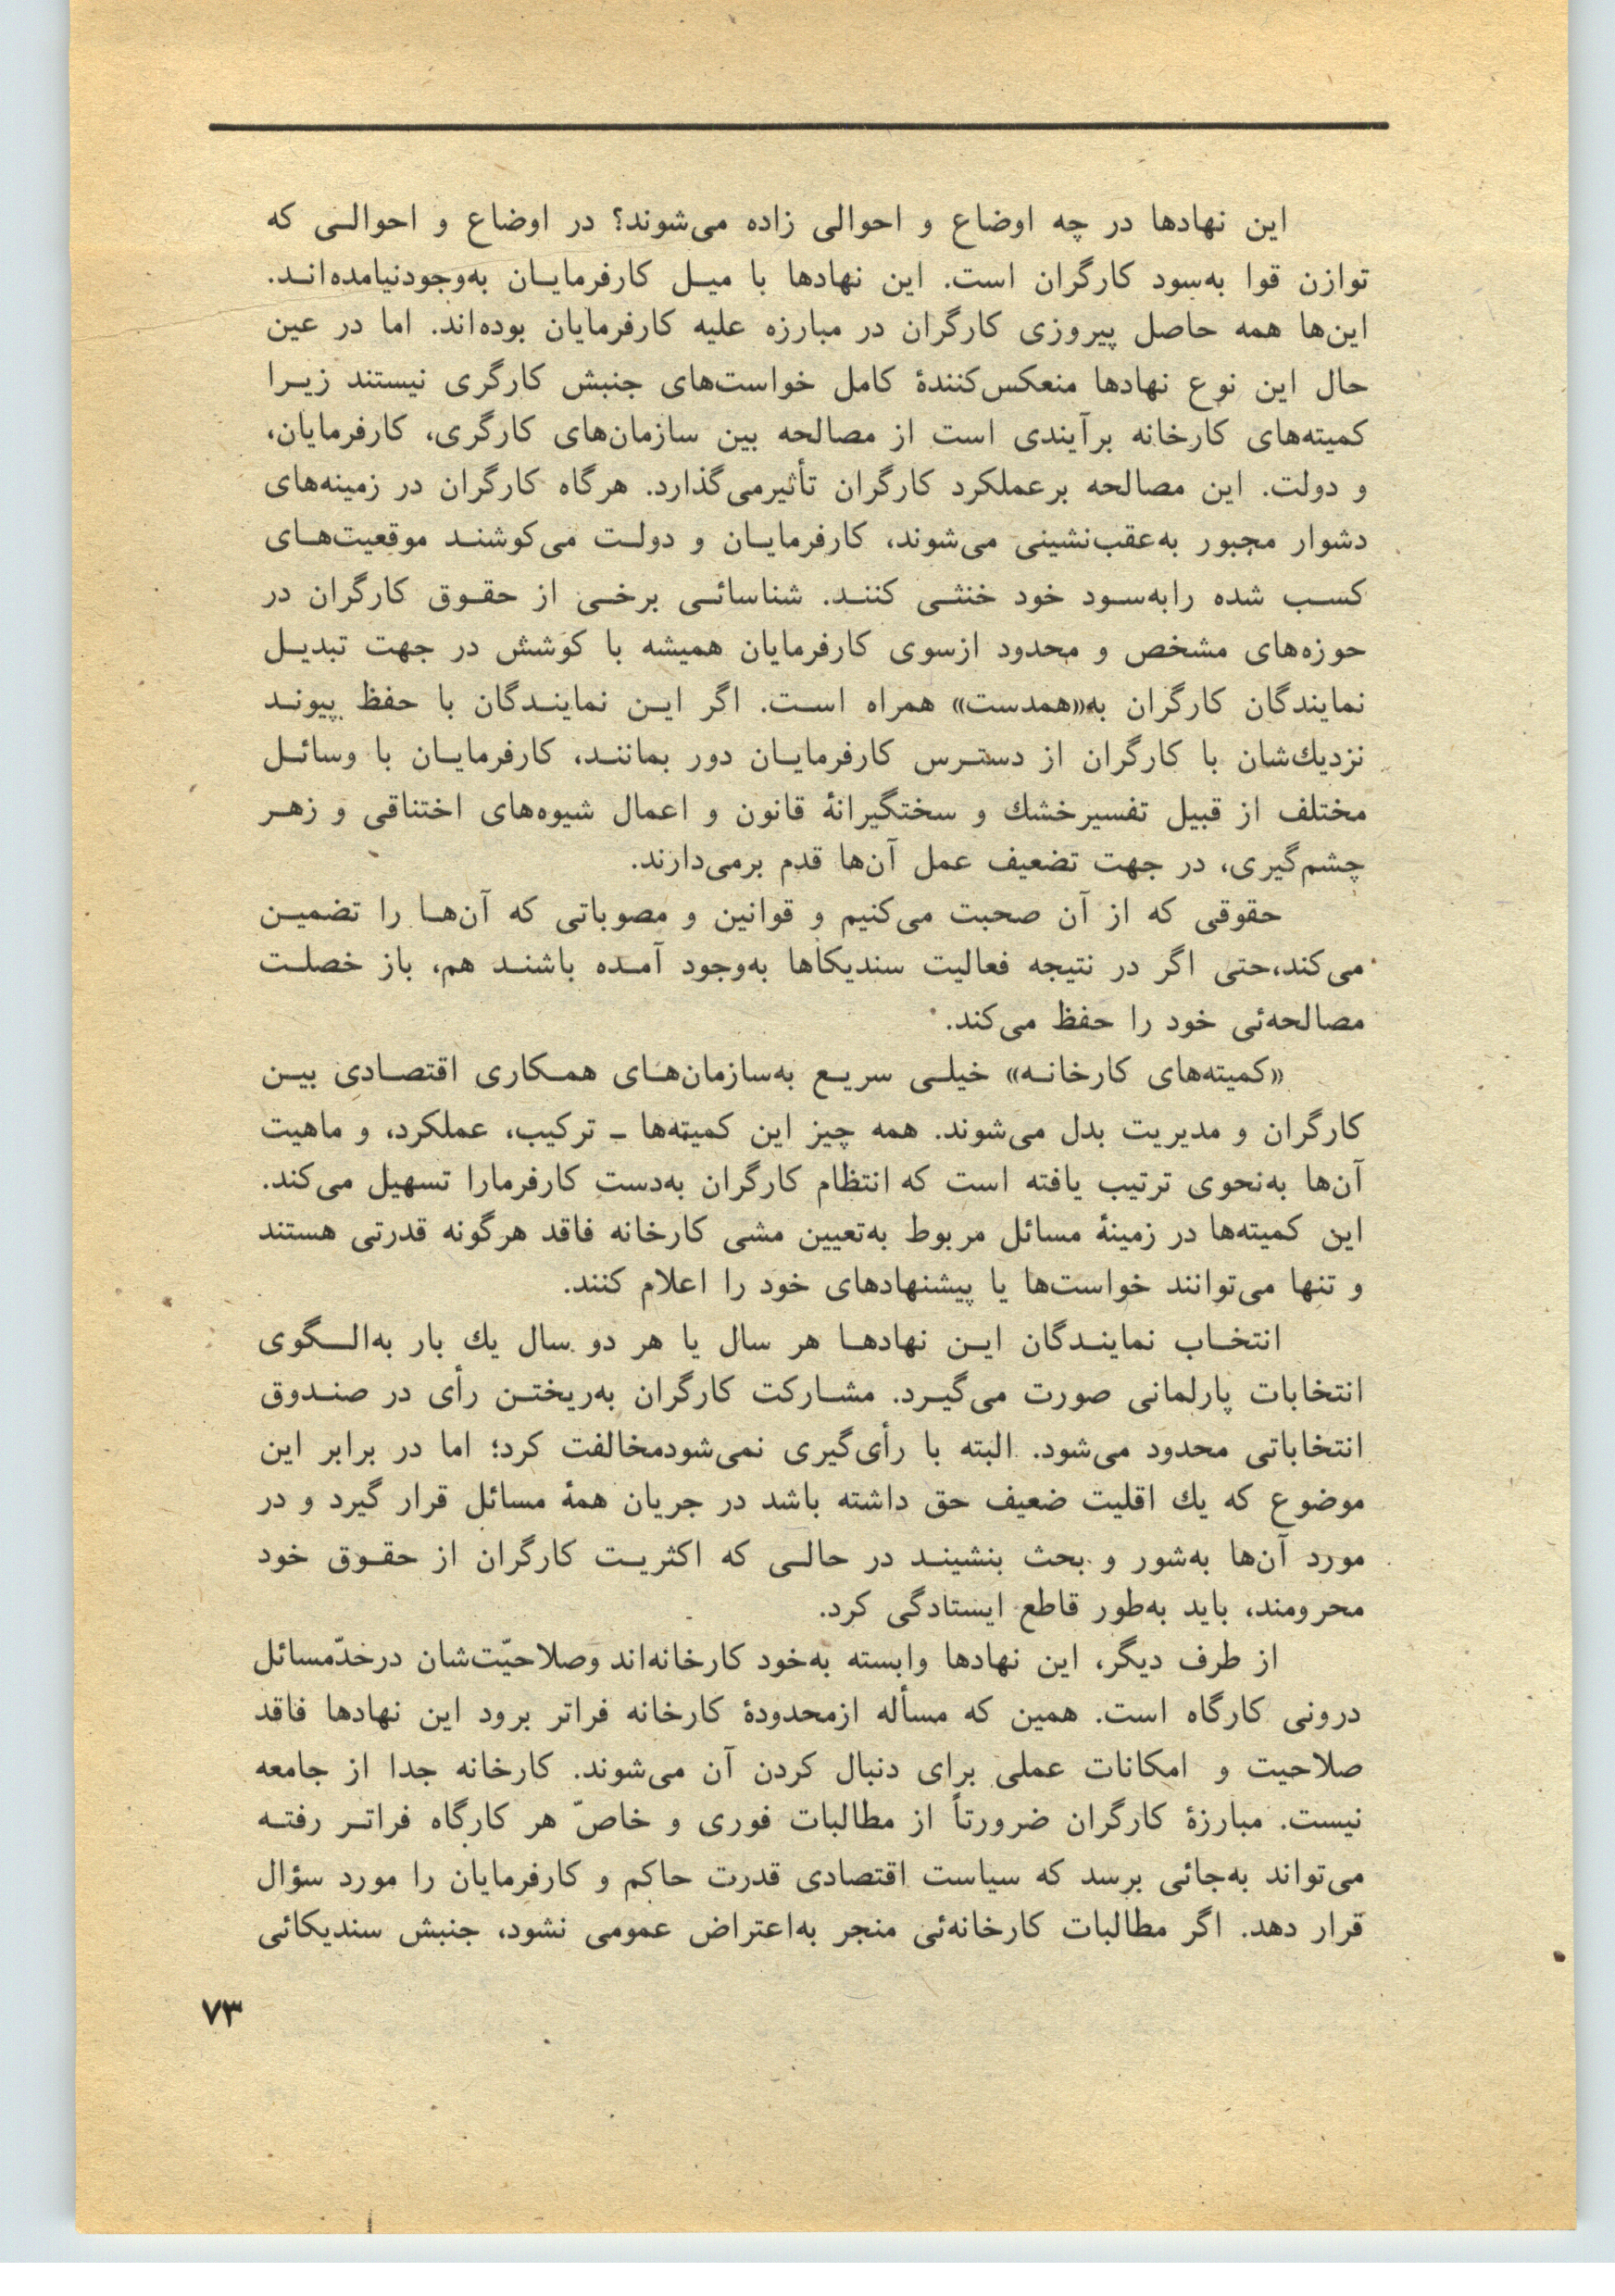 این نهادها در چه اوضاع و احوالی زاده می‌شوند؟ در اوضاع و احوالی که
توازن قوا به‌سود کارگران است. این نهادها با میل کارفرمایان به‌وجودنیامده‌اند.
این‌ها همه حاصل پیروزی کارگران در مبارزه علیه کارفرمایان بوده‌اند. اما در عین
حال این نوع نهادها منعکس‌کنندهٔ کامل خواست‌های جنبش کارگری نیستند زیرا
کمیته‌های کارخانه برآیندی است از مصالحه بین سازمان‌های کارگری، کارفرمایان،
و دولت. این مصالحه برعملکرد کارگران تأثیرمی‌گذارد. هرگاه کارگران در زمینه‌های
دشوار مجبور به‌عقب‌نشینی می‌شوند، کارفرمایان و دولت می‌کوشند موقعیت‌های
کسب شده رابه‌سود خود خنثی کنند. شناسائی برخی از حقوق کارگران در
حوزه‌های مشخص و محدود ازسوی کارفرمایان همیشه با کوشش در جهت تبدیل
نمایندگان کارگران به«همدست» همراه است. اگر این نمایندگان با حفظ پیوند
نزدیك‌شان با کارگران از دسترس کارفرمایان دور بمانند، کارفرمایان با وسائل
مختلف از قبیل تفسیرخشك و سختگیرانهٔ قانون و اعمال شیوه‌های اختناقی و زهر
چشم‌گیری، در جهت تضعیف عمل آن‌ها قدم برمی‌دارند.
حقوقی که از آن صحبت می‌کنیم و قوانین و مصوباتی که آن‌ها را تضمین
می‌کند،حتی اگر در نتیجه فعالیت سندیکاها به‌وجود آمده باشند هم، باز خصلت
مصالحه‌ئی خود را حفظ می‌کند.
«کمیته‌های کارخانه» خیلی سریع به‌سازمان‌های همکاری اقتصادی بین
کارگران و مدیریت بدل می‌شوند. همه چیز این کمیته‌ها ـ ترکیب، عملکرد، و ماهیت
آن‌ها به‌نحوی ترتیب یافته است که انتظام کارگران به‌دست کارفرمارا تسهیل می‌کند.
این کمیته‌ها در زمینهٔ مسائل مربوط به‌تعیین مشی کارخانه فاقد هرگونه قدرتی هستند
و تنها می‌توانند خواست‌ها یا پیشنهادهای خود را اعلام کنند.
انتخاب نمایندگان این نهادها هر سال یا هر دو سال یك بار به‌الگوی
انتخابات پارلمانی صورت می‌گیرد. مشارکت کارگران به‌ریختن رأی در صندوق
انتخاباتی محدود می‌شود. البته با رأی‌گیری نمی‌شودمخالفت کرد؛ اما در برابر این
موضوع که یك اقلیت ضعیف حق داشته باشد در جریان همهٔ مسائل قرار گیرد و در
مورد آن‌ها به‌شور و بحث بنشیند در حالی که اکثریت کارگران از حقوق خود
محرومند، باید به‌طور قاطع ایستادگی کرد.
از طرف دیگر، این نهادها وابسته به‌خود کارخانه‌اند وصلاحیّت‌شان درحدّمسائل
درونی کارگاه است. همین که مسأله ازمحدودهٔ کارخانه فراتر برود این نهادها فاقد
صلاحیت و امکانات عملی برای دنبال کردن آن می‌شوند. کارخانه جدا از جامعه
نیست. مبارزهٔ کارگران ضرورتاً از مطالبات فوری و خاصّ هر کارگاه فراتر رفته
می‌تواند به‌جائی برسد که سیاست اقتصادی قدرت حاکم و کارفرمایان را مورد سؤال
قرار دهد. اگر مطالبات کارخانه‌ئی منجر به‌اعتراض عمومی نشود، جنبش سندیکائی
۷۳